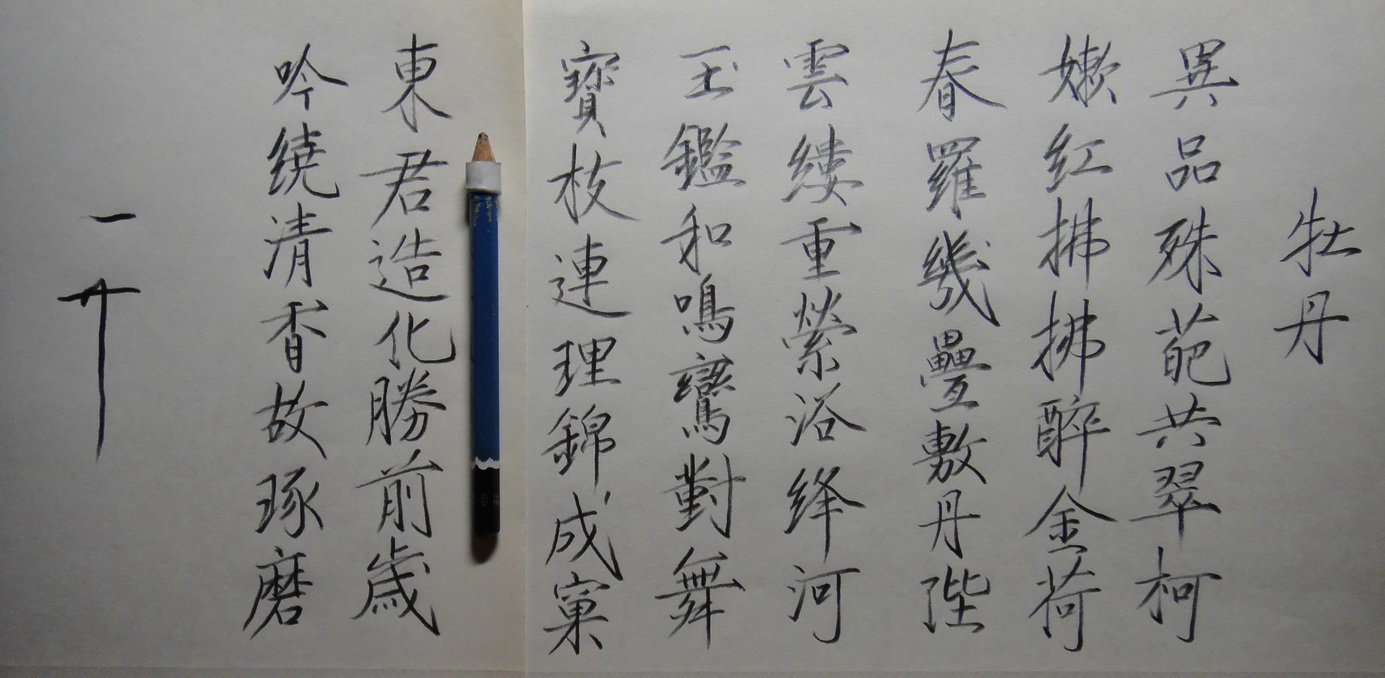 牡丹
異品殊葩共翠柯
嫩紅拂拂醉金荷
春羅幾疊敷丹陛
雲縷重縈浴絳河
玉鑑和鳴鸞對舞
寶枝連理錦成窠
東君造化勝前歲
吟繞清香故琢磨